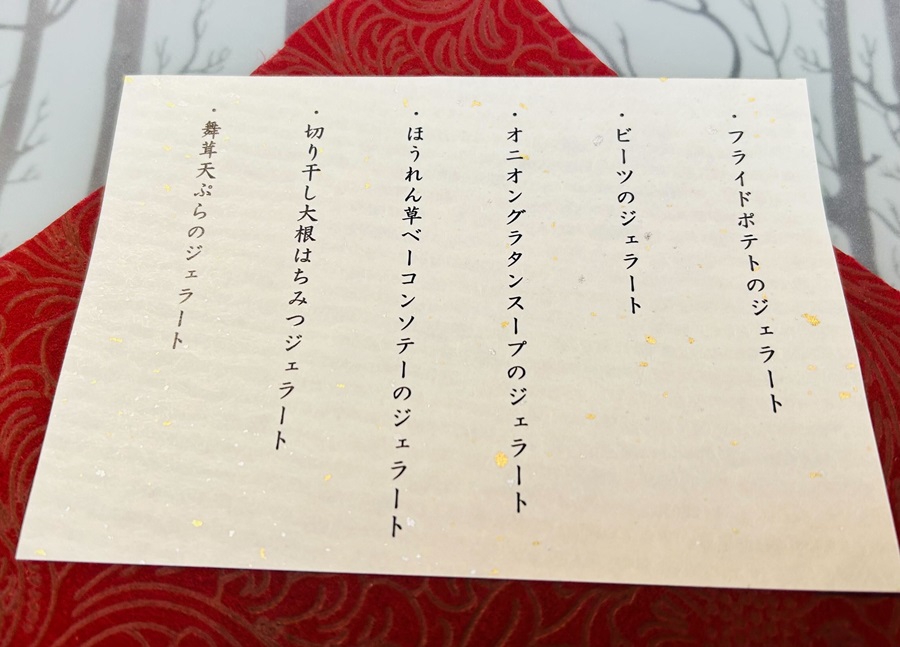 ・フライドポテトのジェラート
・ビーツのジェラート
・オニオングラタンスープのジェラート
・ほうれん草ベーコンソテーのジェラート
・切り干し大根はちみつジェラート
・舞茸天ぷらのジェラート